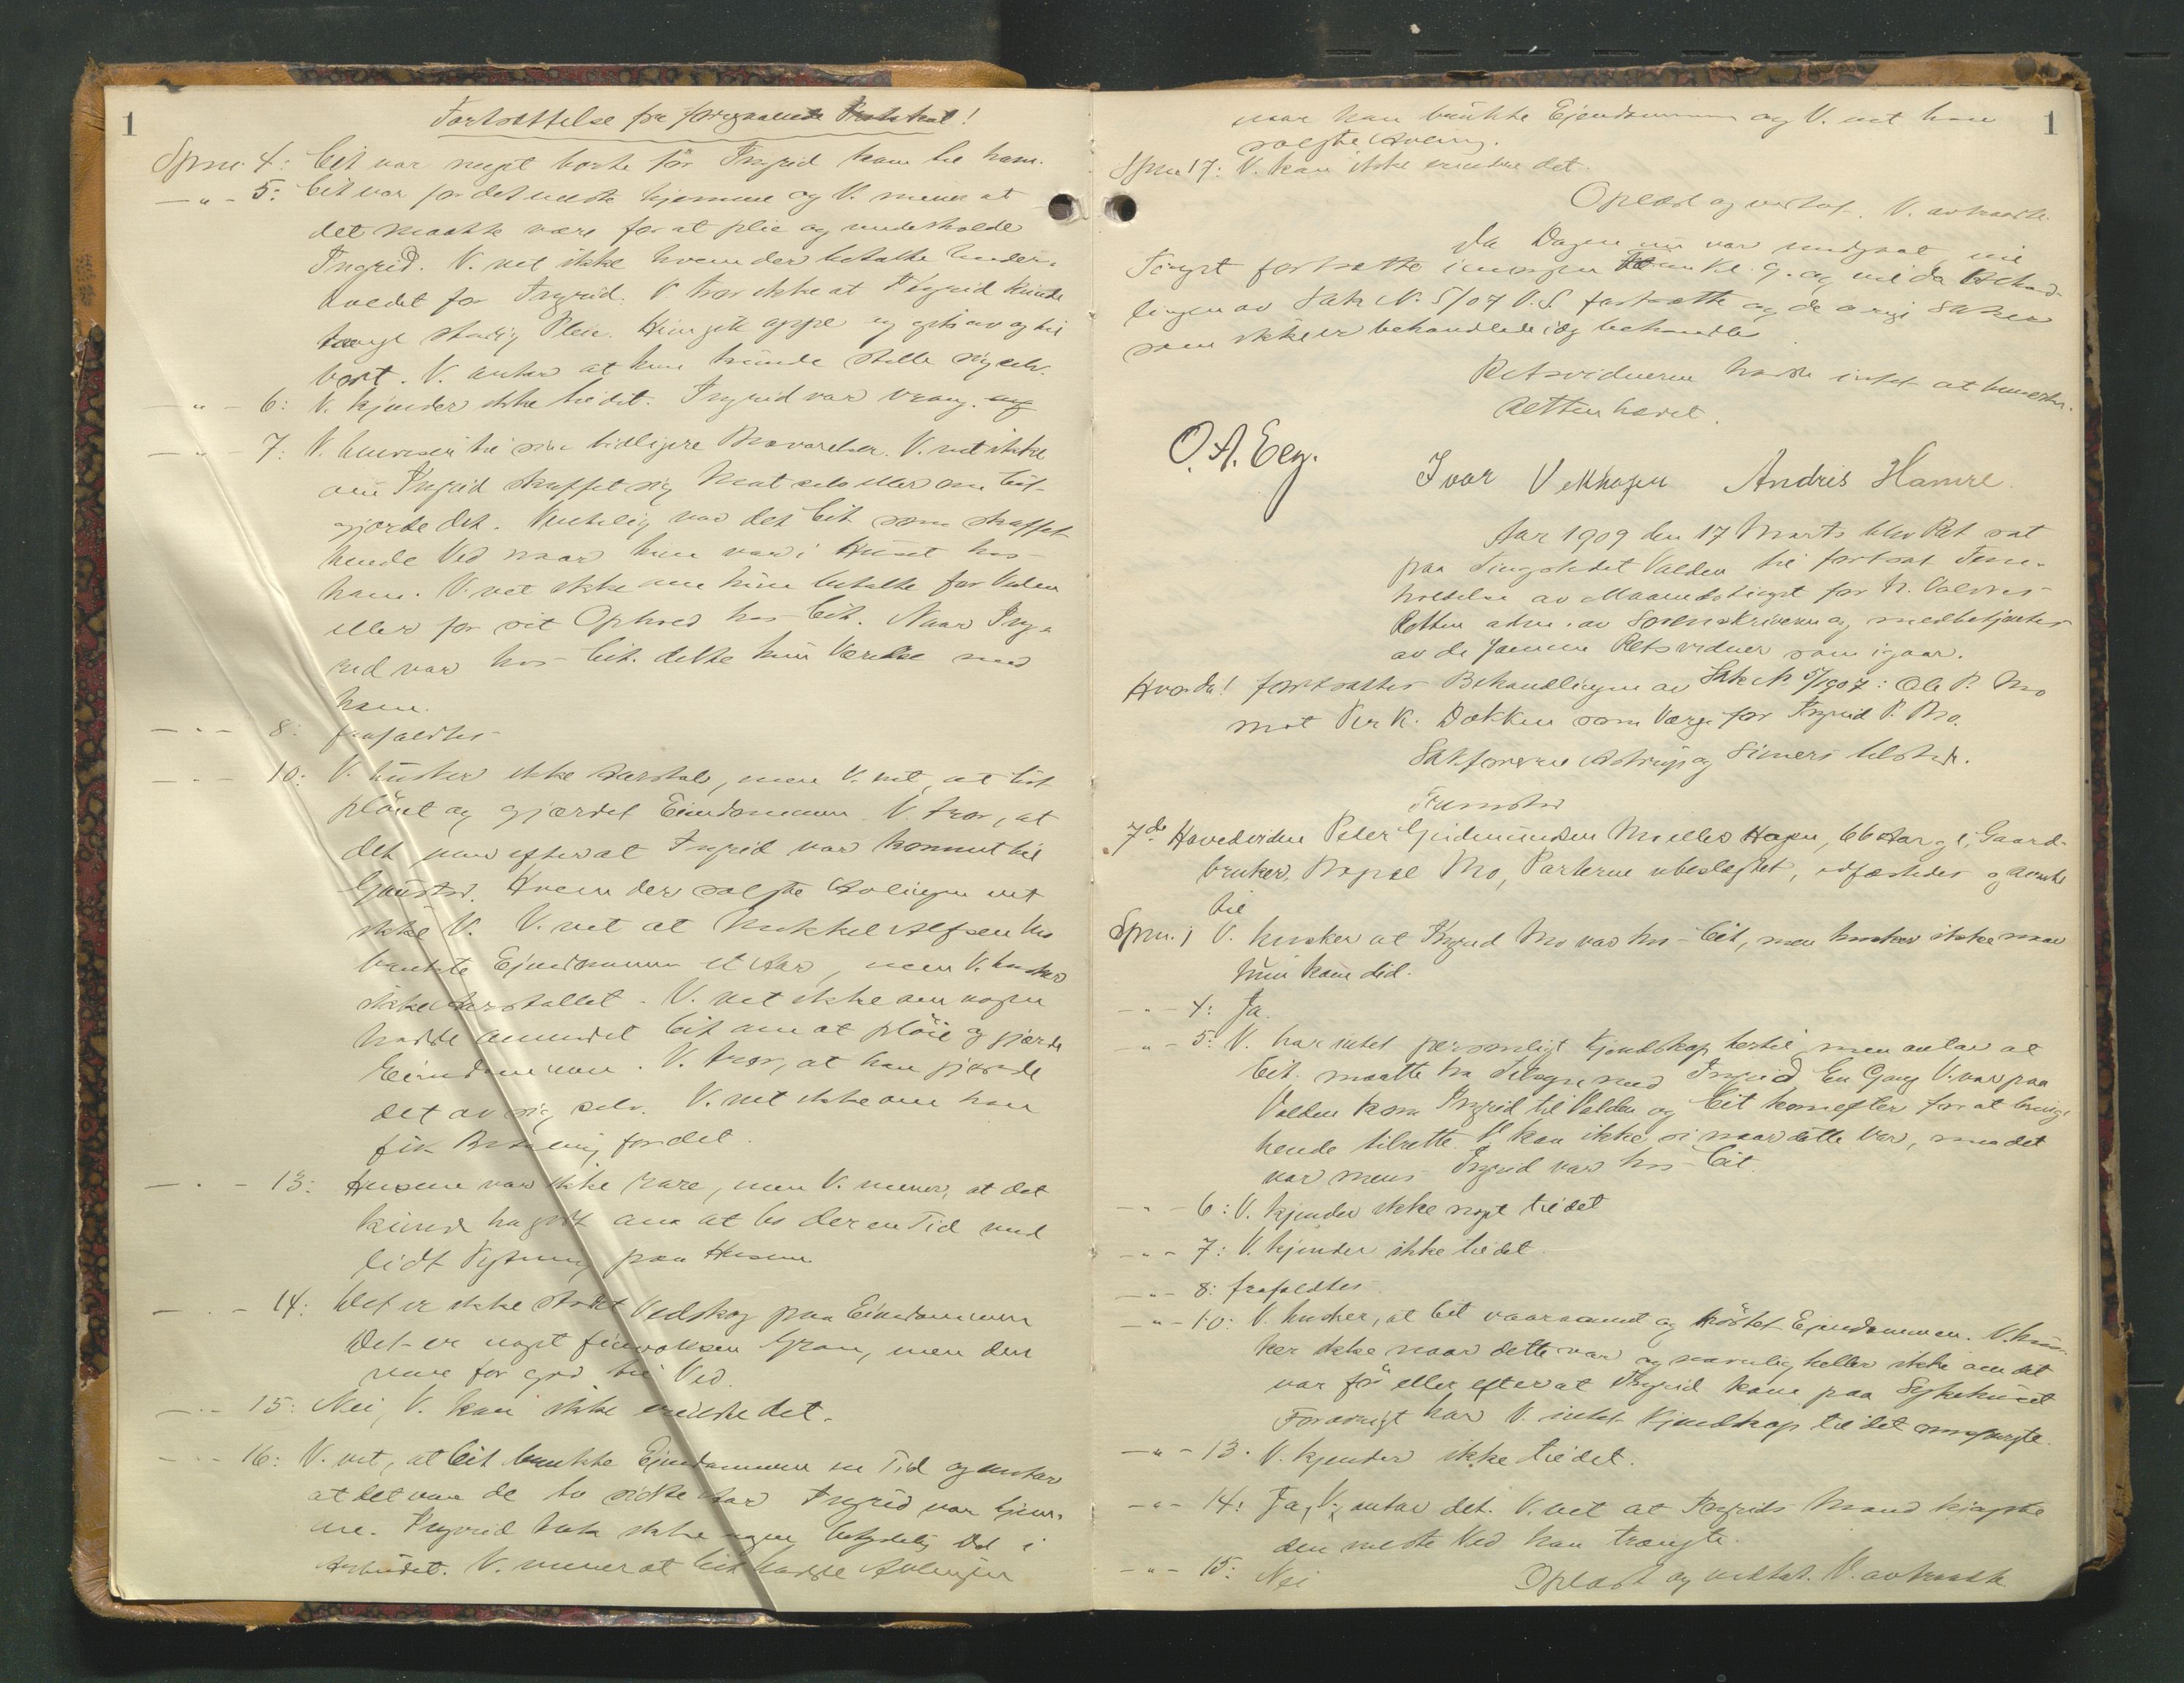 1
Fortsættelse fra foregaaende Protokol!
Spm. 4: Citt var noget borte før Ingrid kom til ham.
— " - 5: Citt var for det meste hjemme og V. mener at
det maatte være for at pleie og underholde
Ingrid. V. vet ikke hvem der betalte Under-
holdet for Ingrid. V. tror ikke at Ingrid kunde
trenge stadig Pleie. Hun gik oppe og gik av og til
bort. V. antar at hun kunde stelle sig selv.
— " - 6: V. kjender ikke til det. Ingrid var vrang.
— " - 7: V. henviser til sine tidligere Besvarelser. V. vet ikke
om Ingrid skaffet sig Mat selv eller om Cit
gjorde det. Antagelig var det Cit som skaffet
hende Ved naar hun var i Huset hos
ham. V. vet ikke om hun betalte for Veden
eller for sit Ophold hos Cit. Naar Ing-
rid var hos Cit. delte hun Værelse med
ham.
— " - 8: frafaldtes
— " - 10: V. husker ikke Aarstal, men V. vet, at Cit
pløiet og gjærdet Eiendommen. V. tror, at
det var efter at Ingrid var kommet til
Gaustad. Hvem der solgte Avlingen vet
ikke V. V. vet at Mikkel Alfsen Mo
brukte Ejendommen et Aar, men V. husker
ikke Aarstallet. V. vet ikke om nogen
hadde anmodet Cit om at pløie og gjærde
Eiendommen. V. tror, at han gjorde
det av sig selv. V. vet ikke om han
fik Betaling for det.
— " - 13: Husene var ikke rare, men V. mener, at det
kunde ha godt an at bo der en Tid med
lidt Flytning paa Husene
— " - 14: Det er ikke stort Vedskog paa Eiendommen
Det er noget finvoksen Gran, men den
var for god til Ved.
— " - 15: Nei, V. kan ikke erindre det.
— " - 16: V. vet, at Cit brukte Ejendommen en Tid og antar
at det var de to sidste Aar Ingrid var hjem-
me. Ingrid tok ikke nogen betydelig Del i
Arbeidet. V. mener at Cit hadde Avlingen
1
naar han brukte Ejendommen og V. vet han
solgte Avling.
Spm. 17: V. kan ikke erindre det.
Oplæst og vedtat. V. avtraadte.
Da Dagen nu var undgaat, vil
Tinget fortsætte imorgen Kl. 9. og vil da Behand-
lingen av Sak N. 5/07 V.S. fortsætte og de øvrige Saker
som ikke er behandlede idag behandles
Retsvidnerne hadde intet at bemerke.
Retten hævet.
O. A. Eeg. Ivar Andris Hamre.
Aar 1909 den 17 Marts blev Ret sat
paa Tingstedet Volden til fortsat
holdelse av Maanedstinget for N. Valdres
Retten adm. av Sorenskriveren og medbetjentes
av de samme Retsvidner som igaar.
Hvorda! fortsattes Behandlingen av Sak N 5/1907: Ole P. Mo
mot Per K. Dokken som Værge for Ingrid P. Mo.
Sakførerne Astrup og tilstede.
Fremstod
7de Hovedvidne Peter Gudmundsen Mo eller Hagen, 66 Aar g l, Gaard-
bruker, Mo, Parterne ubeslægtet, edfæstedes og svarte
til
Spm. 1 V. husker at Ingrid Mo var hos Cit, men husker ikke naar
hun kom did.
— " - 4: Ja.
— " - 5: V. har intet personligt Kjendskap hertil men antar at
Cit. maatte ha Tilsyn med Ingrid. En Gang V. var paa
Volden kom Ingrid til Volden og Cit kom efter for at bringe
hende tilrette. V. kan ikke si naar dette var, men det
var mens Ingrid var hos Cit.
— " - 6: V. kjender ikke noget til det
— " - 7: V. kjender ikke til det.
— " - 8: frafaldtes
— " - 10: V. husker, at Cit vaaraannet og høstet Ejendommen. V. hus-
ker ikke naar dette var og navnlig heller ikke om det
var før eller efter at Ingrid kom paa Sykehuset
Forøvrigt har V. intet Kjendskap til det omspurgte.
— " - 13. V. kjender ikke til det.
— " - 14: Ja, V. antar det. V. vet at Ingrids Mand kjøpte
den meste Ved han trængte.
— " - 15: Nei Oplæst og vedtat. V. avtraadte